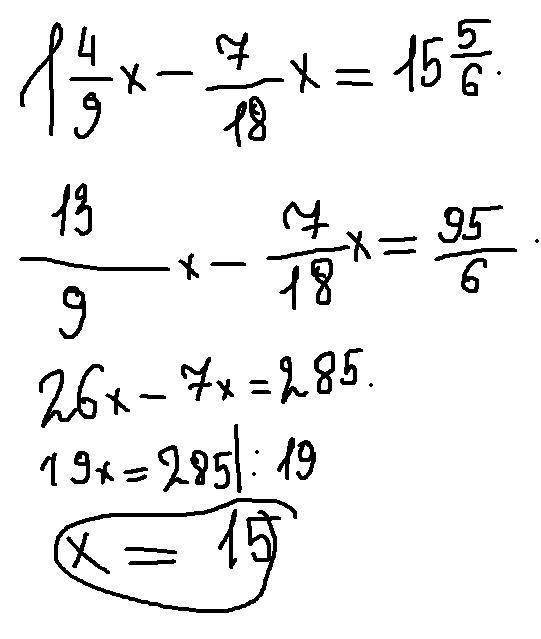 1 4/9 x - 7/18 x = 15 5/6.
13/9 x - 7/18 x = 95/6.
26x - 7x = 285.
19x = 285 | : 19
x = 15